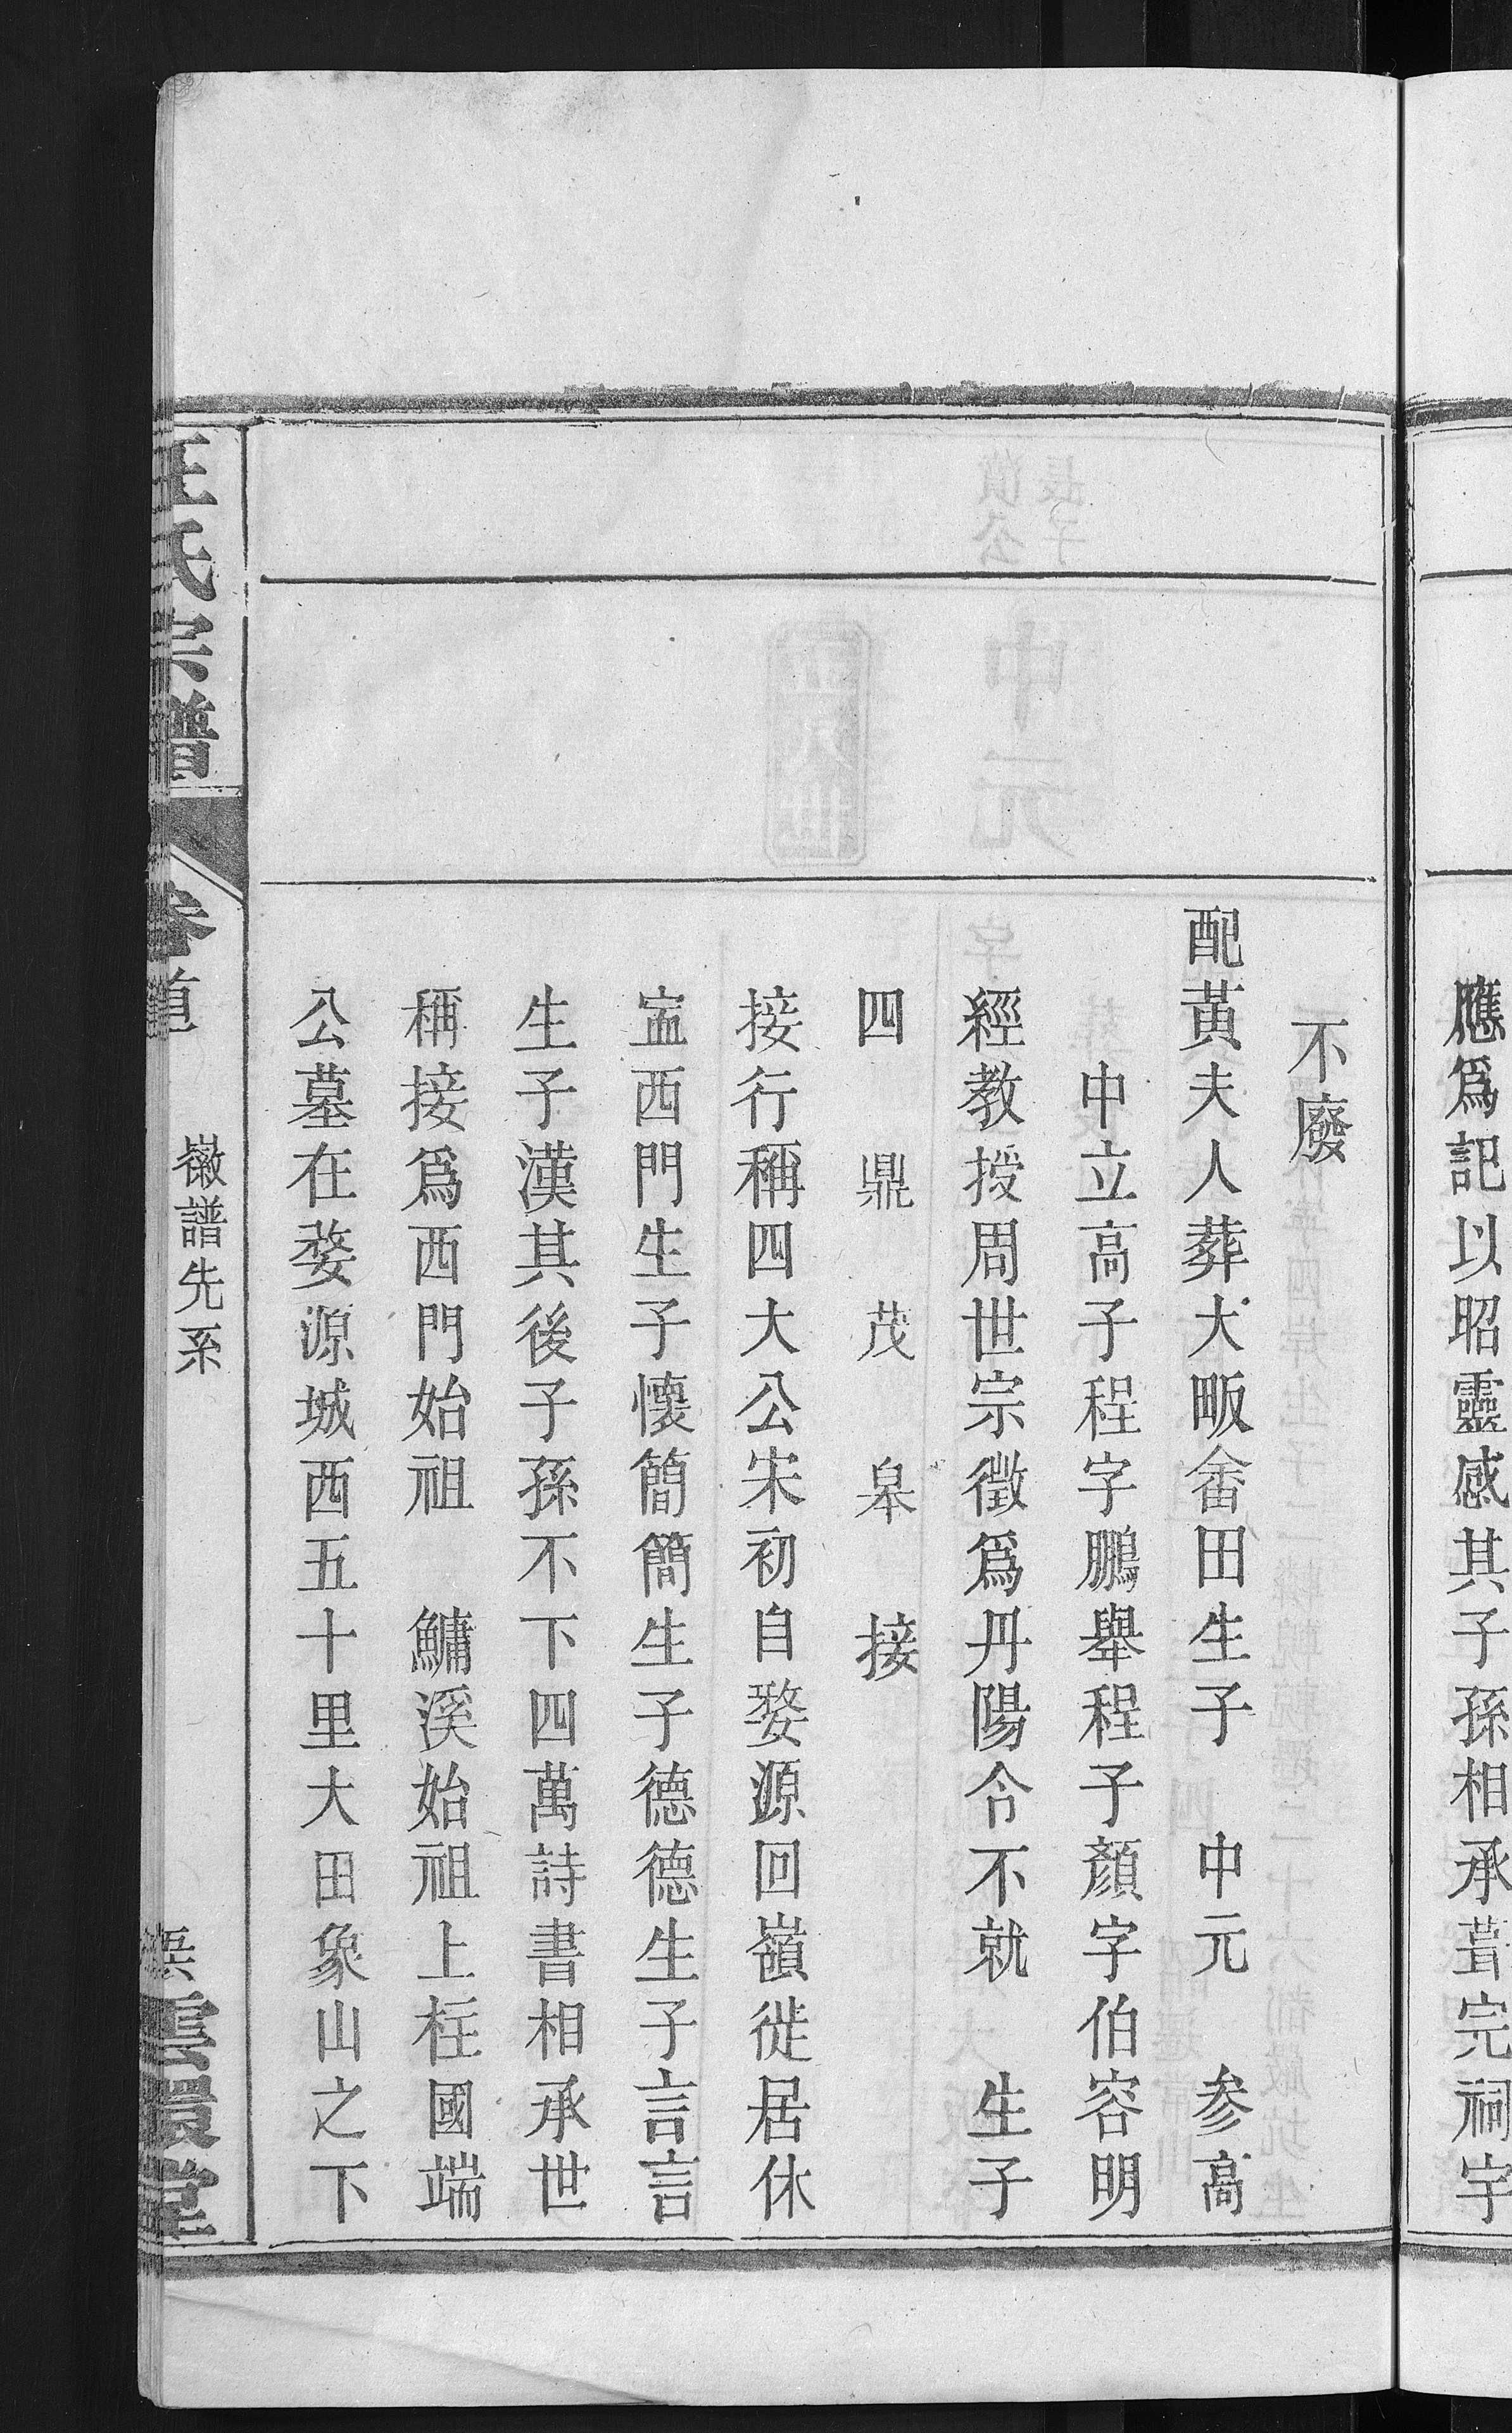 應爲記以昭靈感其子孫相承葺完祠宇
不廢
配黃夫人葬大畈畬田生子　中元　参高
中立高子程字鵬舉程子顏字伯容明
經教授周世宗徵爲丹陽令不就　生子
四　鼎　茂　皋　接
接行稱四大公宋初自婺源回嶺徙居休
寍西門生子懷簡簡生子德德生子言言
生子漢其後子孫不下四萬詩書相承世
稱接爲西門始祖　鱅溪始祖上柱國端
公墓在婺源城西五十里大田象山之下
汪氏宗譜
卷首
徽譜先系
雲環堂